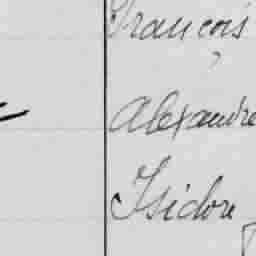 François
Alexandre
Isidore